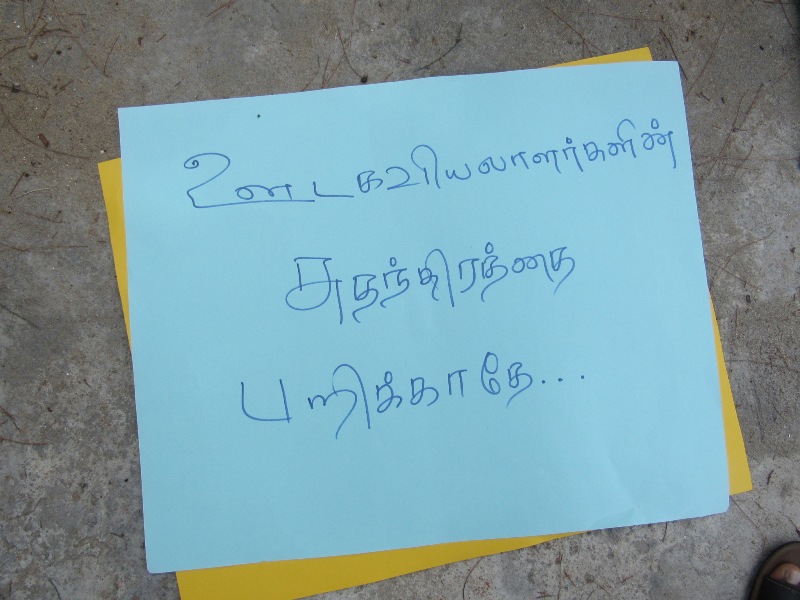 ஊடகவியலாளர்களின்
சுதந்திரத்தை
பறிக்காதே...